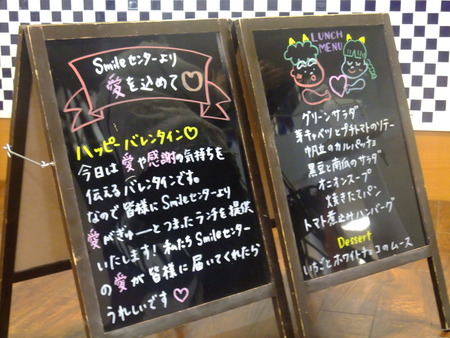 Smileセンターより
愛を込めて♡
ハッピーバレンタイン♡
今日は愛や感謝の気持ちを
伝えるバレンタインです。
なので皆様にSmileセンターより
愛がぎゅーとつまったランチを提供
いたします！私たちSmileセンター
の愛が皆様に届いてくれたら
うれしいです♡
LUNCH
MENU
グリーンサラダ
芽キャベツとプチトマトのソテー
帆立のカルパッチョ
黒豆と南瓜のサラダ
オニオンスープ
焼きたてパン
トマト煮込みハンバーグ
Dessert
いちごとホワイトチョコのムース